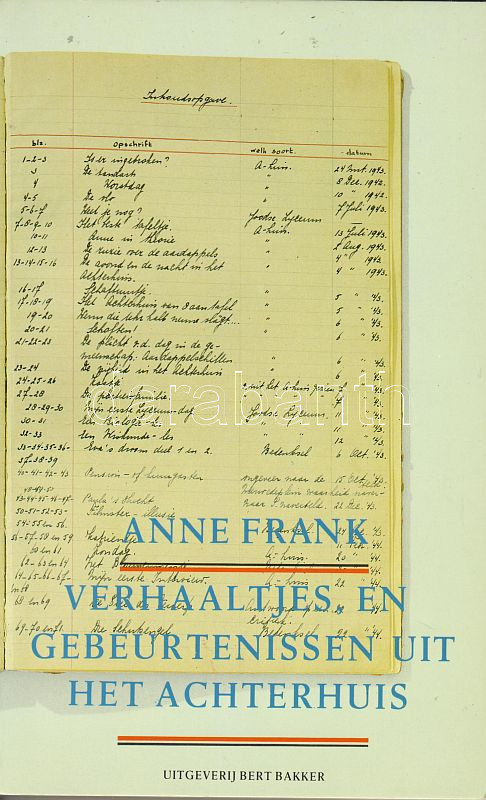 Inhoudsopgave.
blz. opschrift welk soort. datum
1-2-3 Is er ingebroken? A-huis. 24 Mrt. 1943.
3 De tandarts " 8 Dec. 1942.
4 Worstdag " 10 " 1942.
4-5 De vlo " 7 Juli 1943.
5-6-7 Weet je nog? Joodse Lyceum
7-8-9-10 Het beste tafeltje. A-huis. 13 Juli 1943.
10-11 Anne in theorie " 2 Aug. 1943.
12-13 De ruzie over de aardappels " 4 " 1943
13-14-15-16 De avond en de nacht in het " 4 " 1943.
Achterhuis.
16-17 Schaftuurtje. " 5 " '43.
17-18-19 Het Achterhuis van 8 aan tafel " 5 " '43.
19-20 Wenn die Uhr halb neune slägt.... " 6 '43.
20-21 Schaften! "
21-22-23 De plicht v.d. dag in de ge-
meenschap: Aardappelschillen " 6 " '43.
23-24 De vrijheid in het Achterhuis
24-25-26 Kaatje
27-28 De portiersfamilie
28-29-30 Mijn eerste Lyceum-dag Joodse Lyceum. 11 " '43.
30-31 Een Biologie-les " 11 " '43.
32-33 Een Wiskunde-les " " 12 " '43.
33-34-35-36- Eva's droom deel 1 en 2. Bedenksel 6 Oct. '43.
37-38-39
40-41-42-43 Pension- of huurgasten ongeveer naar de 15 Oct. '43.
43-44-45-46-47- Paula's vlucht 22 Dec. '43.
50-51-52-53- Filmster-illusie
54-55 en 56.
56-57-58 en 59 Kaatrientje
60 en 61 Zondag A-huis. 20 " '44.
62-63-64
64-65-66-67- Mijn eerste Interview. A-huis 22 " '44.
68 en 69
69-70 en 71 Die Schutzengel Bedenksel 22 " '44.
darabanth
ANNE FRANK
VERHAALTJES, EN
GEBEURTENISSEN UIT
HET ACHTERHUIS
UITGEVERIJ BERT BAKKER